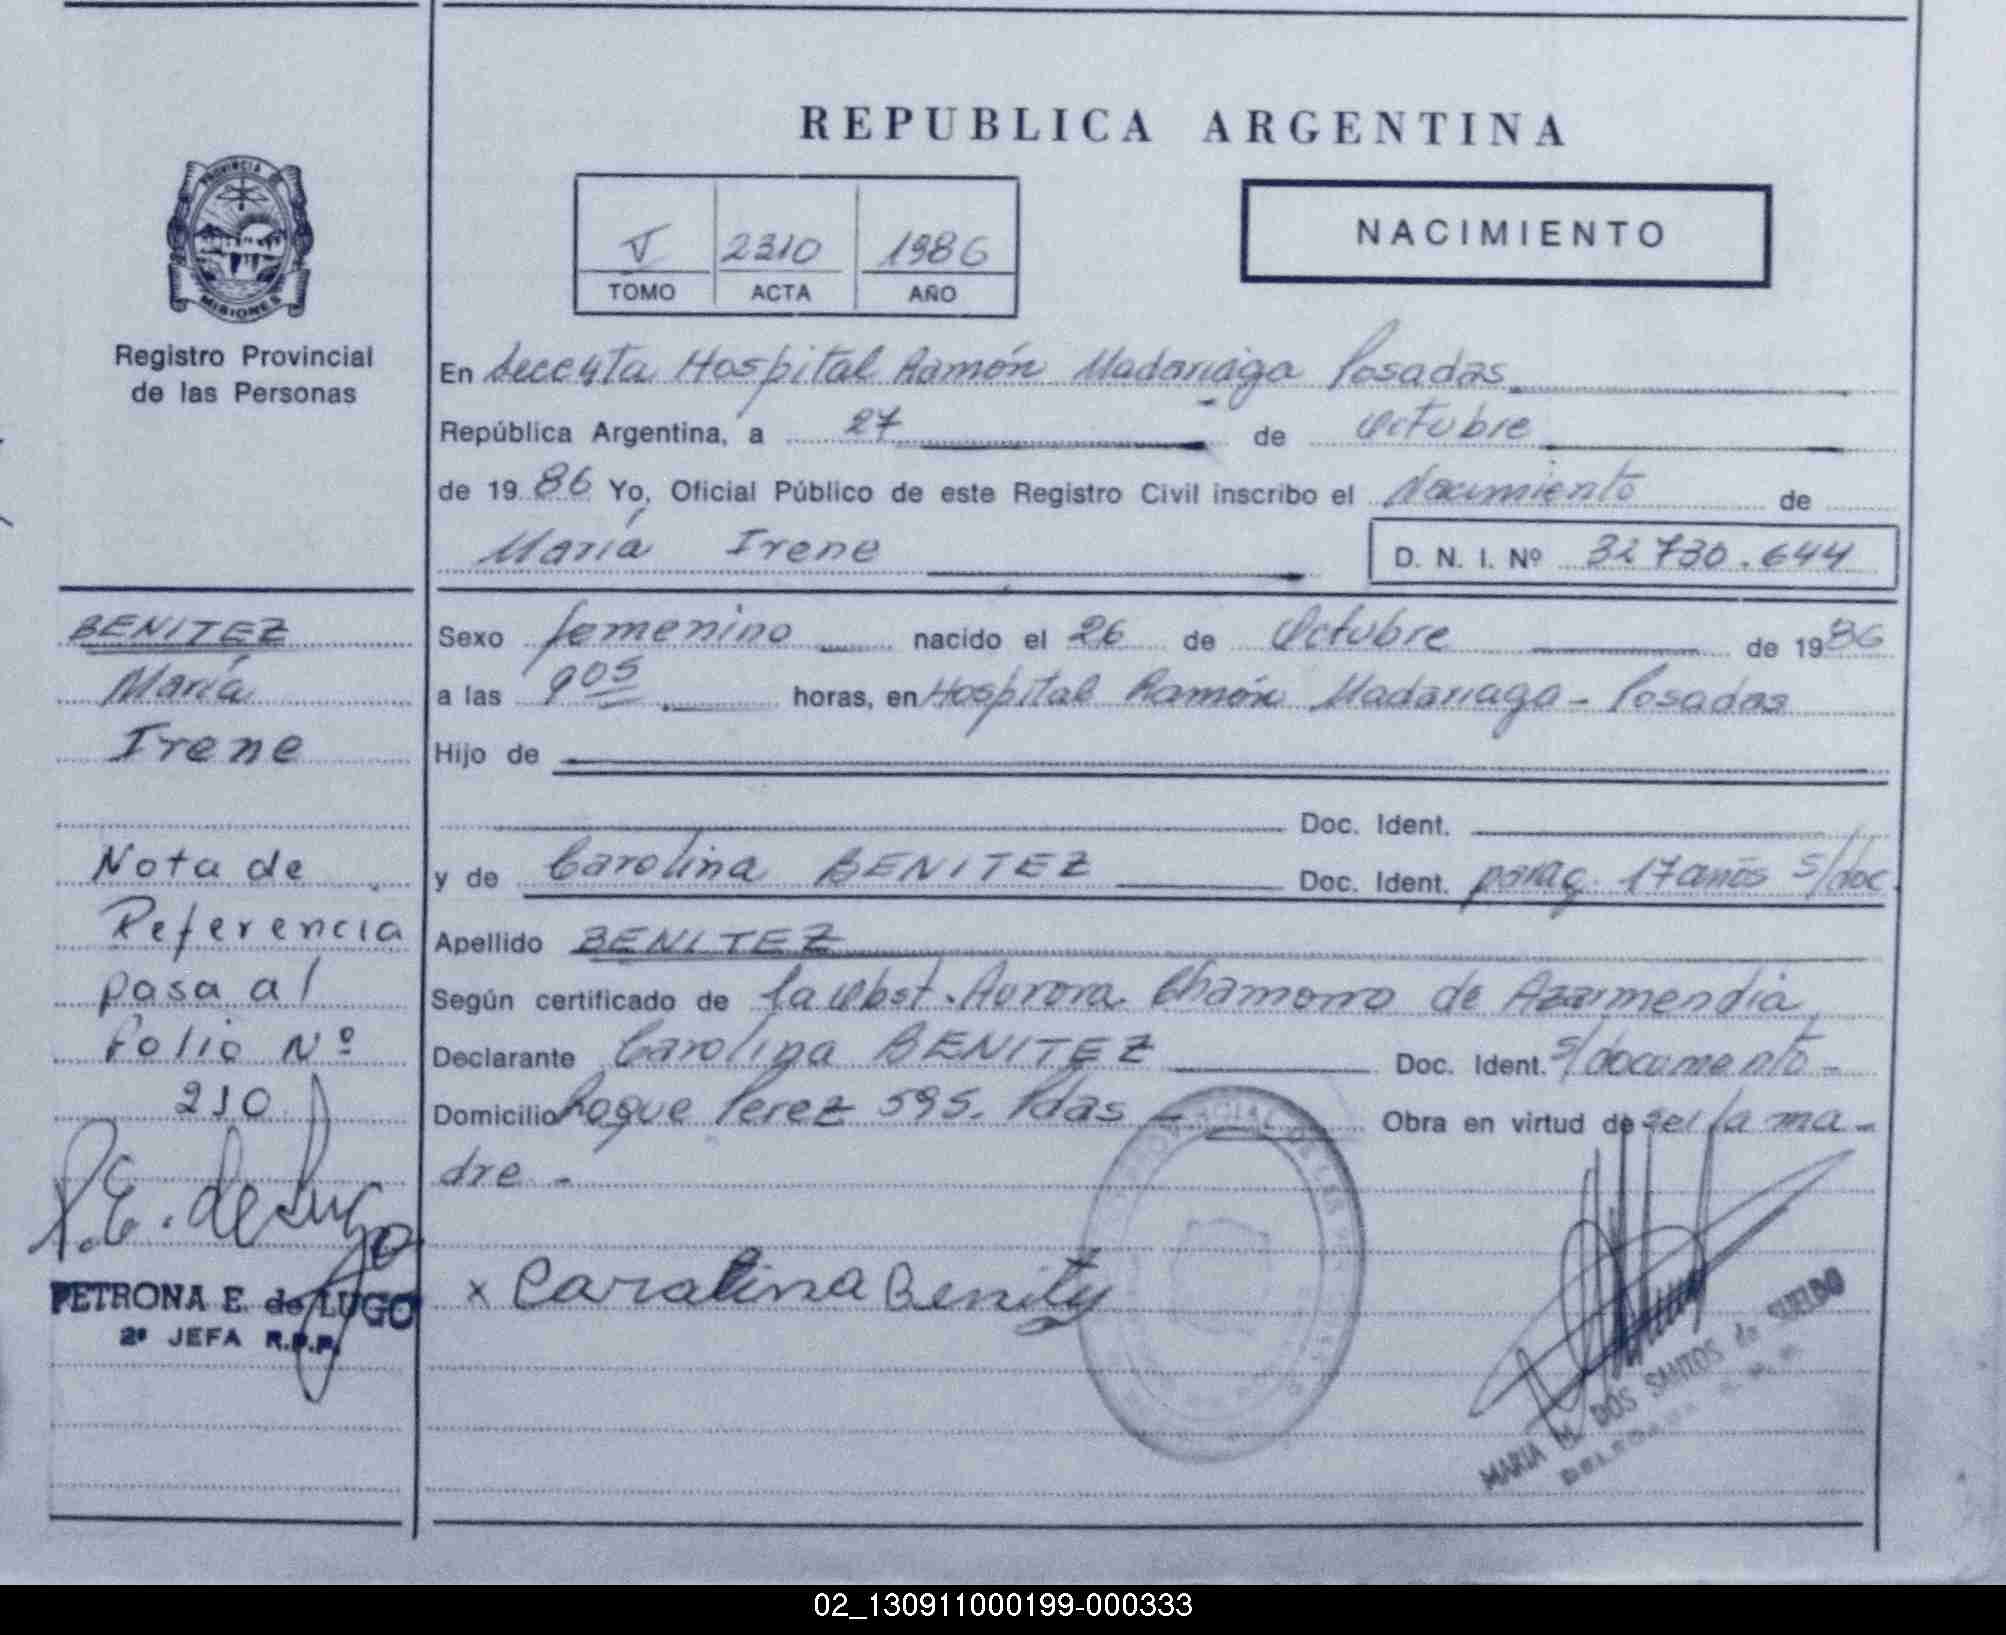 REPUBLICA ARGENTINA
PROVINCIA DE
MISIONES
Registro Provincial
de las Personas
V 2310 1986
TOMO ACTA AÑO
NACIMIENTO
En Seccyta Hospital Ramón Madariaga Posadas
República Argentina, a 27 de Octubre
de 19 86 Yo, Oficial Público de este Registro Civil inscribo el Nacimiento de
María Irene D. N. I. Nº 32 730.644
BENITEZ
María
Irene
Nota de
Referencia
pasa al
folio Nº
210
P.E. de Lugo
PETRONA E. de LUGO
2º JEFA R.P.P.
Sexo femenino nacido el 26 de Octubre de 1986
a las 905 horas, en Hospital Ramón Madariaga - Posadas
Hijo de
Doc. Ident.
y de Carolina BENITEZ Doc. Ident. parag. 17 años s/doc.
Apellido BENITEZ
Según certificado de la Obst. Aurora Chamorro de Azarmendia
Declarante Carolina BENITEZ Doc. Ident. s/documento -
Domicilio Roque Perez 595. Pdas - Obra en virtud de ser la ma-
dre -
x Carolina Benitez
MARIA M. DOS SANTOS de SUELDO
02_130911000199-000333